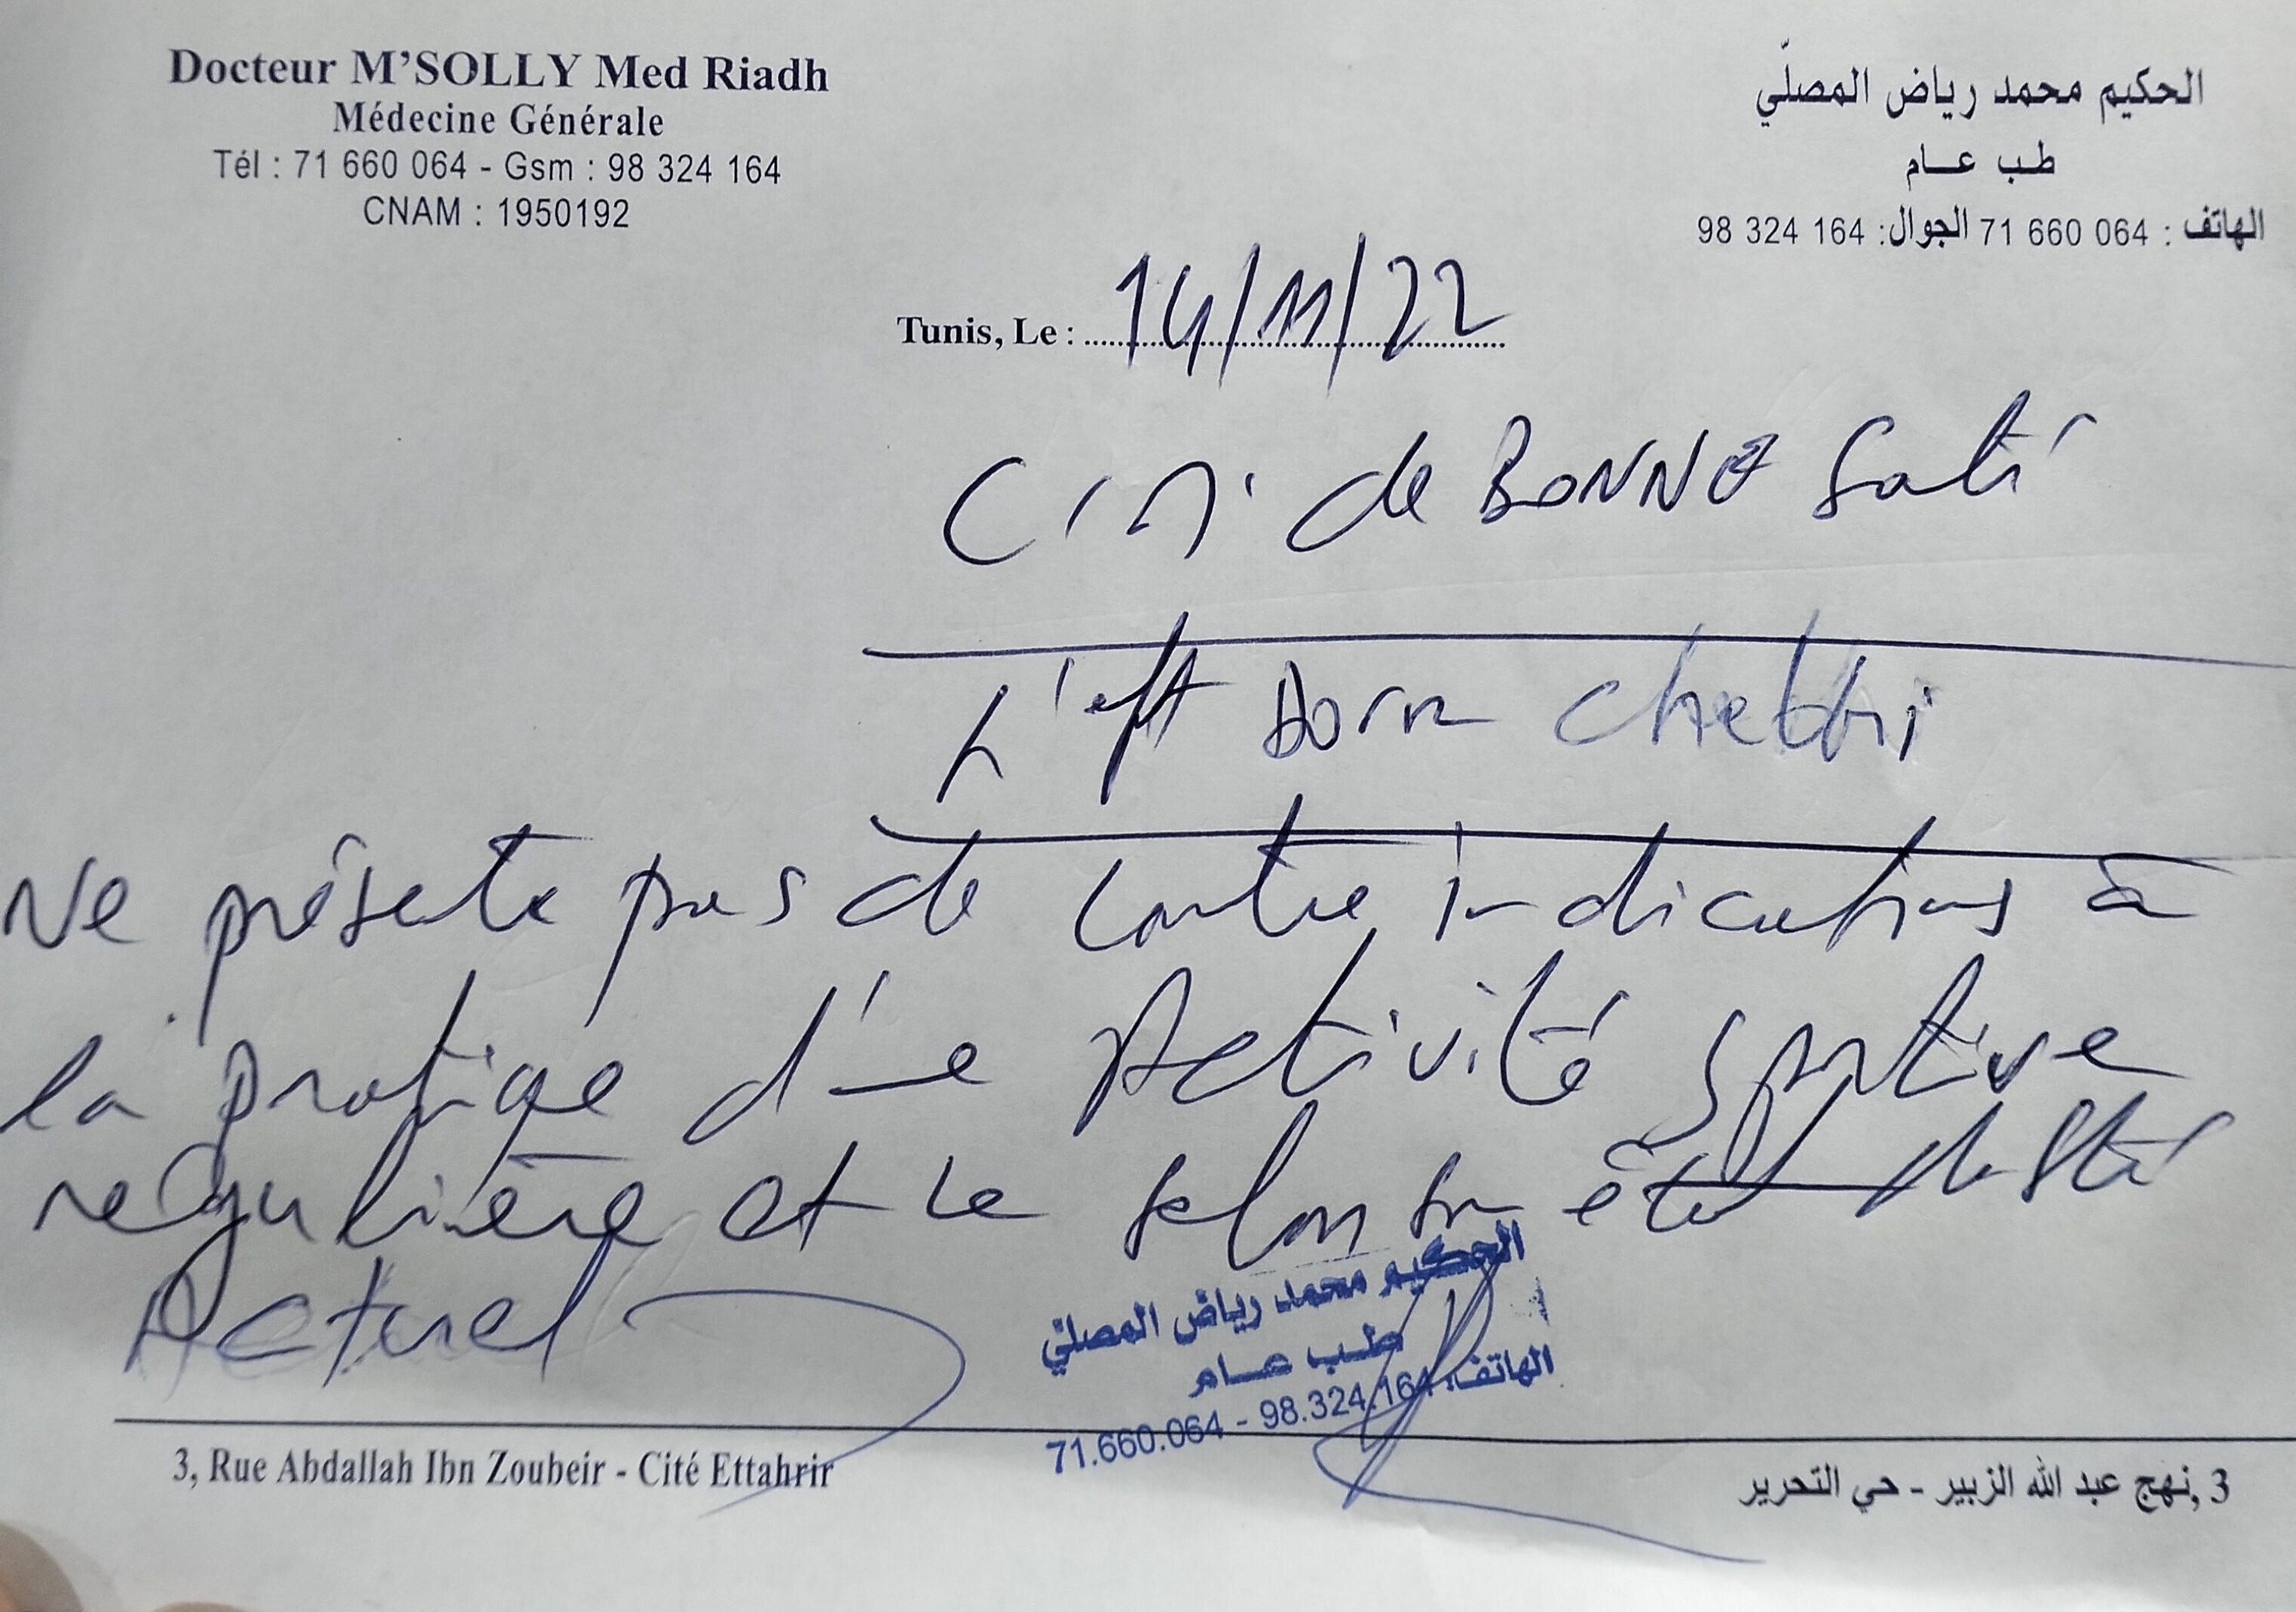 Docteur M'SOLLY Med Riadh
Médecine Générale
Tél : 71 660 064 - Gsm : 98 324 164
CNAM : 1950192
الحكيم محمد رياض المصلّي
طب عــام
الهاتف : 064 660 71 الجوال: 164 324 98
Tunis, Le : 14/11/22
de BONNE Santé
L'eft chebbi
Ne présente pas de contre indications à
la pratique d'une Activité sportive
régulière et ce selon son état de Sté
Actuel
الحكيم محمد رياض المصلي
طب عــام
الهاتف: 98.324.164 - 71.660.064
3, Rue Abdallah Ibn Zoubeir - Cité Ettahrir
3, نهج عبد الله الزبير - حي التحرير